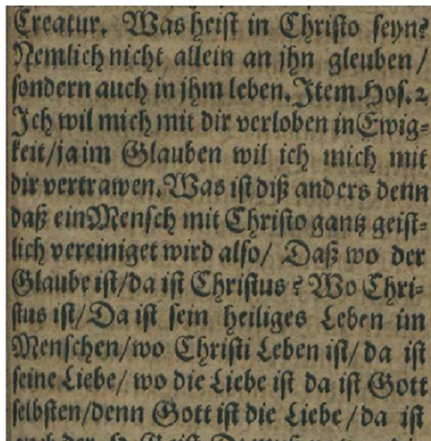 Creatur. Was heist in Christo seyn?
Nemlich nicht allein an jhn gleuben /
sondern auch in jhm leben. Item Hos. 2
Ich wil mich mit dir verloben in Ewig=
keit/ ja im Glauben wil ich mich mit
dir vertrawen. Was ist diß anders denn
daß ein Mensch mit Christo gantz geist=
lich vereiniget wird also/ Daß wo der
Glaube ist/ da ist Christus? Wo Chri=
stus ist/ Da ist sein heiliges Leben im
Menschen/ wo Christi Leben ist/ da ist
seine Liebe/ wo die Liebe ist da ist Gott
selbsten/ denn Gott ist die Liebe/ da ist